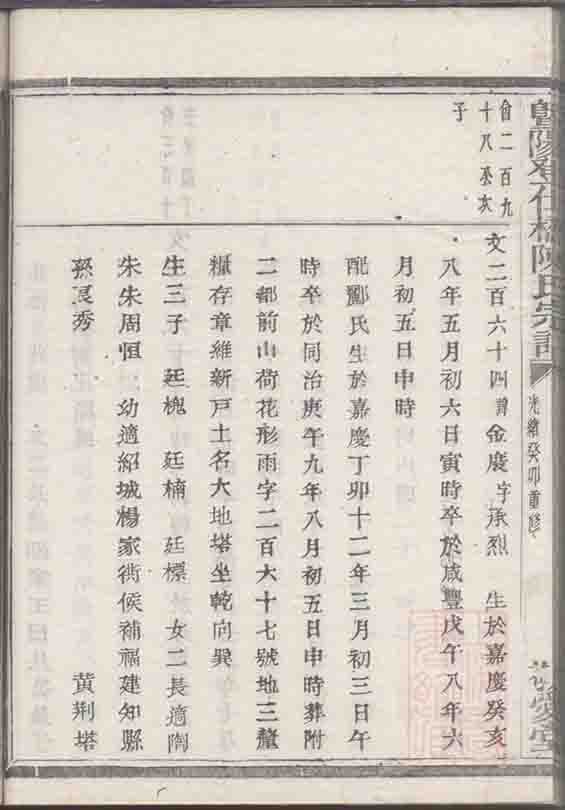 暨陽孝仁橋陳氏宗譜
光緒癸卯重修
愛堂
會二百九
十八癸亥
子
文二百六十四諱金慶字承烈 生於嘉慶癸亥
八年五月初六日寅時卒於咸豐戊午八年六
月初五日申時
配酈氏生於嘉慶丁卯十二年三月初三日午
時卒於同治庚午九年八月初五日申時葬附
二都前山荷花形雨字二百六十七號地三釐
糧存章維新戶土名大地塔坐乾向巽
生三子 廷槐 廷楠 廷標 女二長適陶
朱朱周恒 幼適紹城楊家衖候補福建知縣
孫良秀 黄荆塔